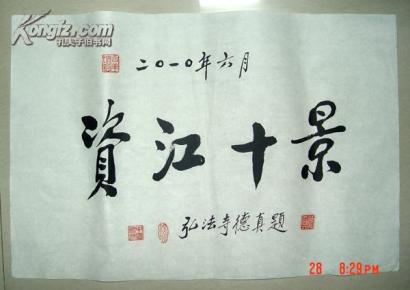 Kongfz.com
孔夫子旧书网
二〇一〇年六月
資江十景
弘法寺德真題
28 8:29PM